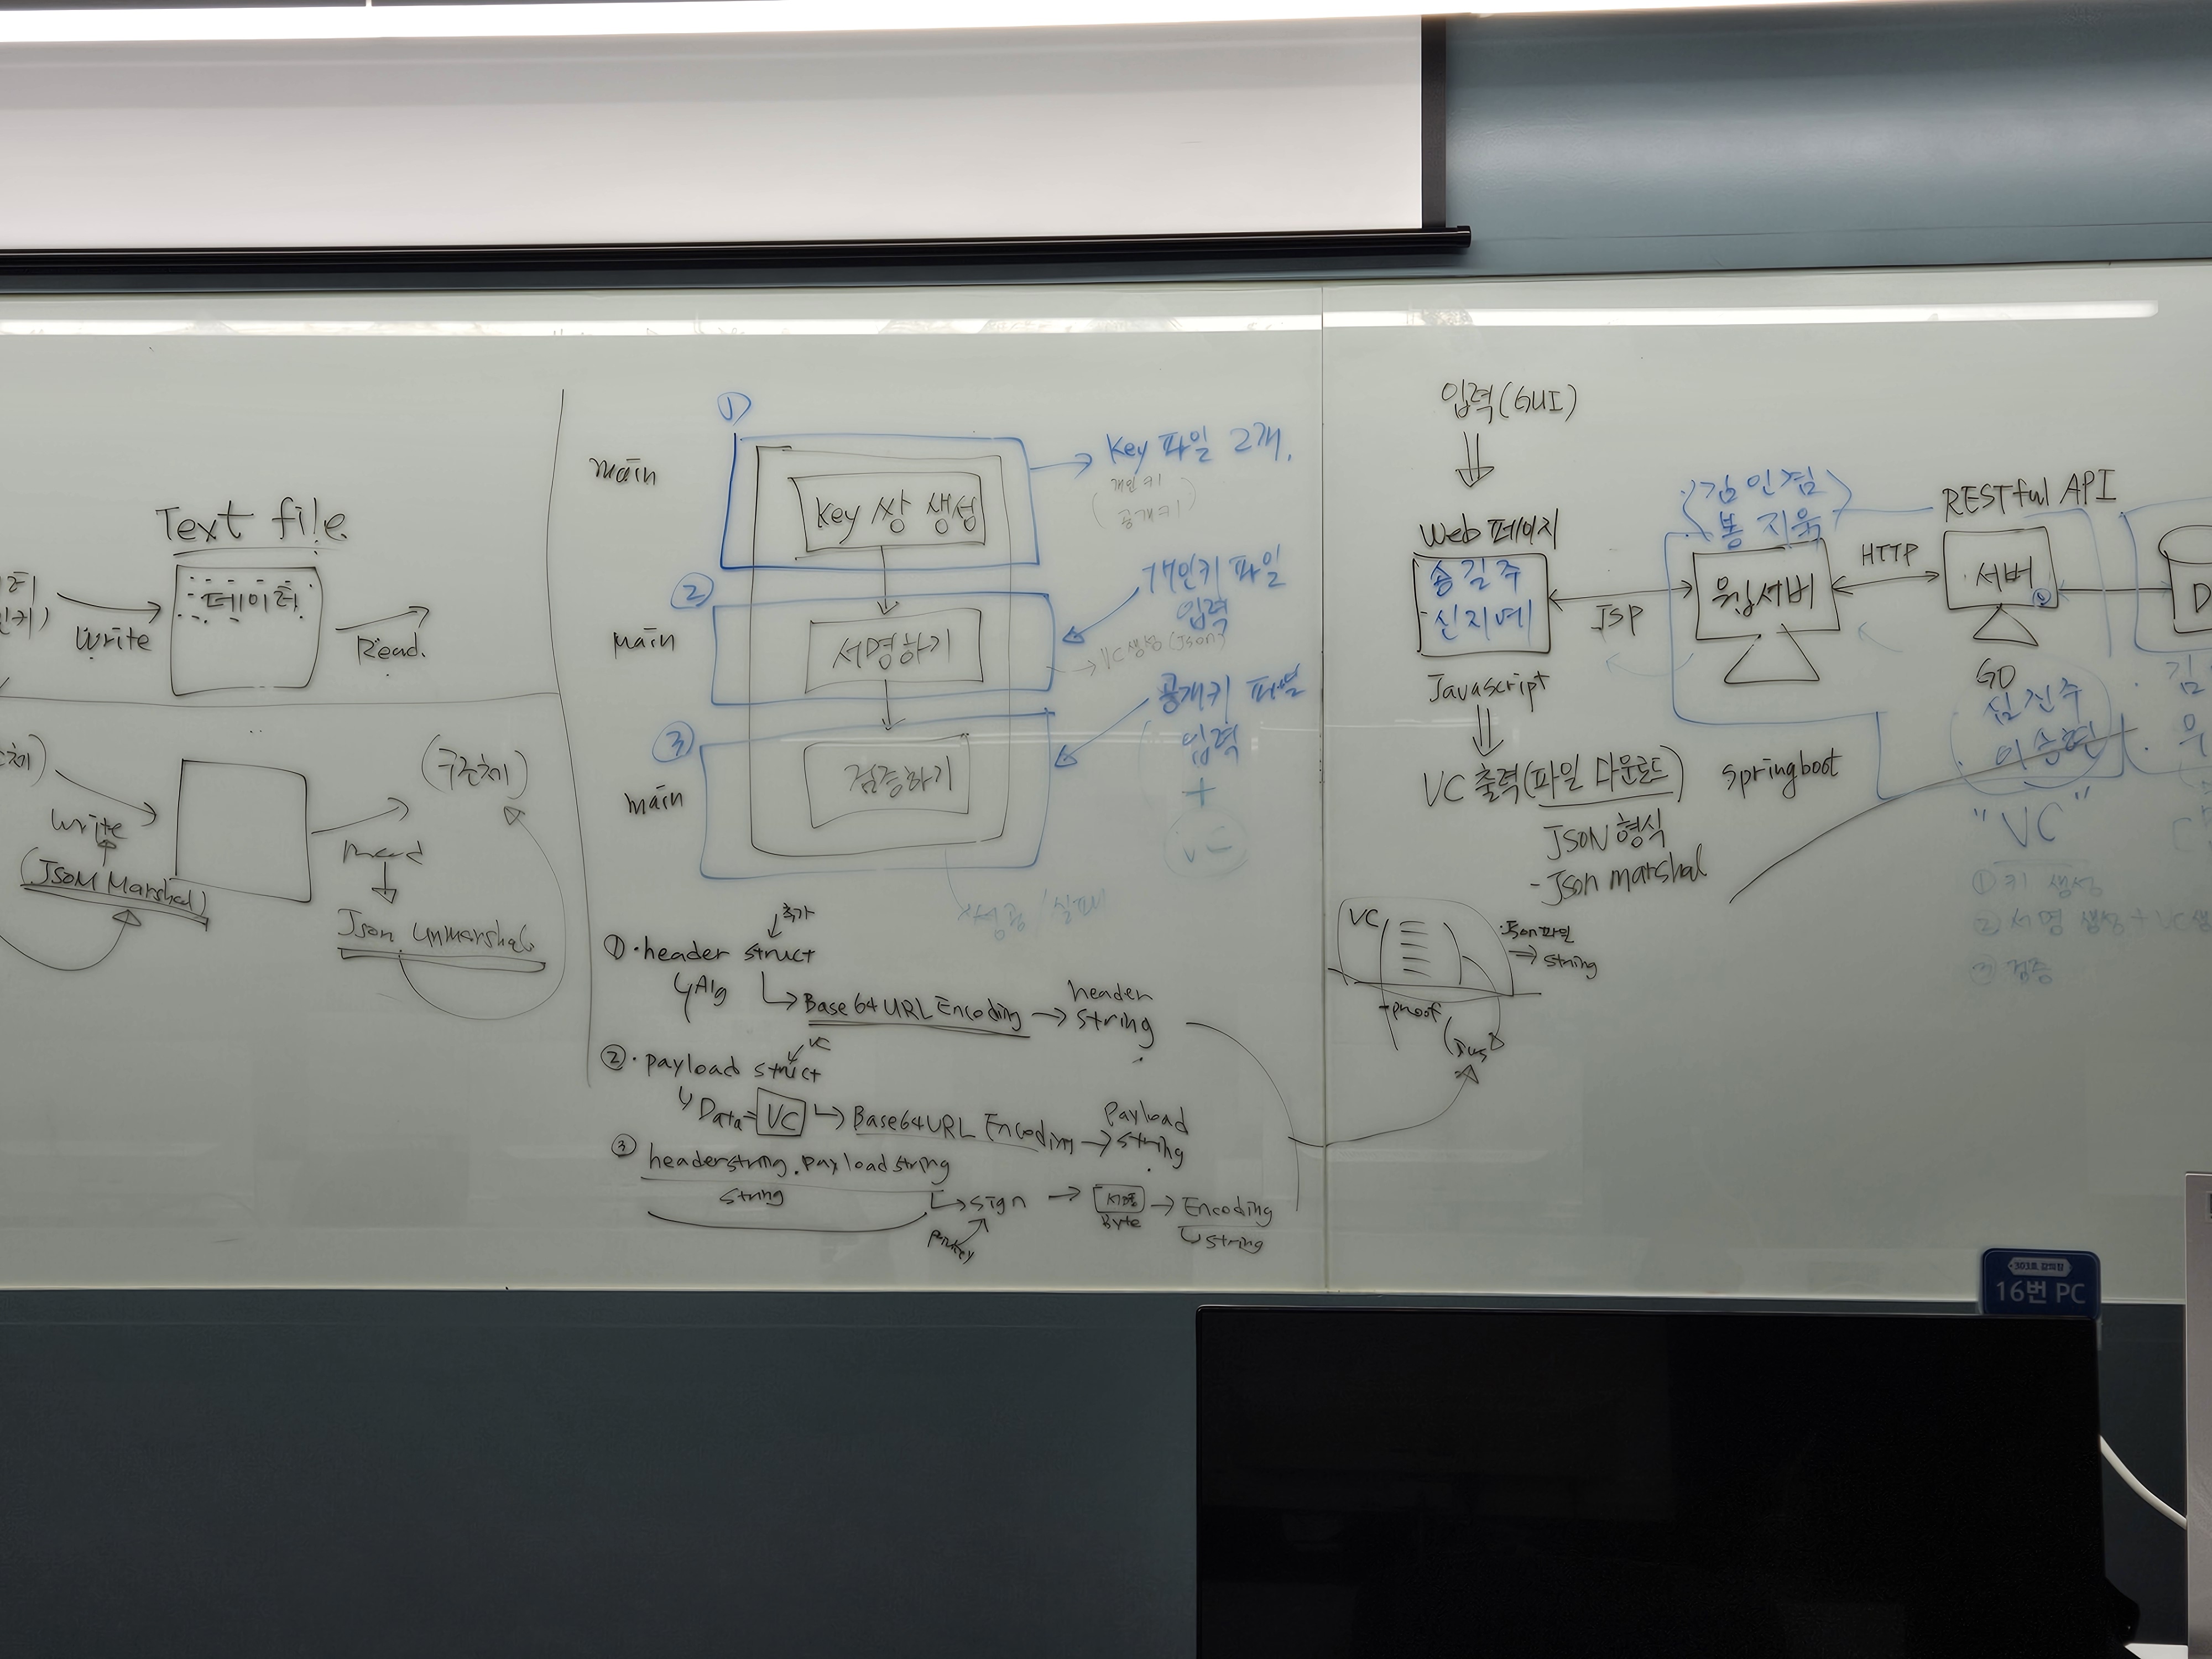 Text file
데이터
Write
Read.
Write
(Json Marshal)
(구조체)
Read
Json Unmarshal
①
main
Key 쌍 생성
Key 파일 2개.
(개인키
공개키)
②
main
서명하기
개인키 파일
입력
→ VC생성(Json)
③
main
검증하기
공개키 파일
입력
+
VC
성공/실패
추가
① · header struct
Alg
Base64URL Encoding → header
string
VC
② · payload struct
Data= VC
Base64URL Encoding → Payload
string
③ headerstring.payloadstring
string
sign → 서명 → Encoding
Byte
string
입력(GUI)
Web 페이지
송길주
신지예
JSP
Javascript
VC 출력(파일 다운로드)
JSON 형식
- Json marshal
김인겸
봉지욱
웹서버
springboot
HTTP
RESTful API
서버
GO
심진주
이승현
"VC"
① 키 생성
② 서명 생성 + VC생
③ 검증
VC
Json파일
→ string
-proof
(jws)
D
303호 강의장
16번 PC